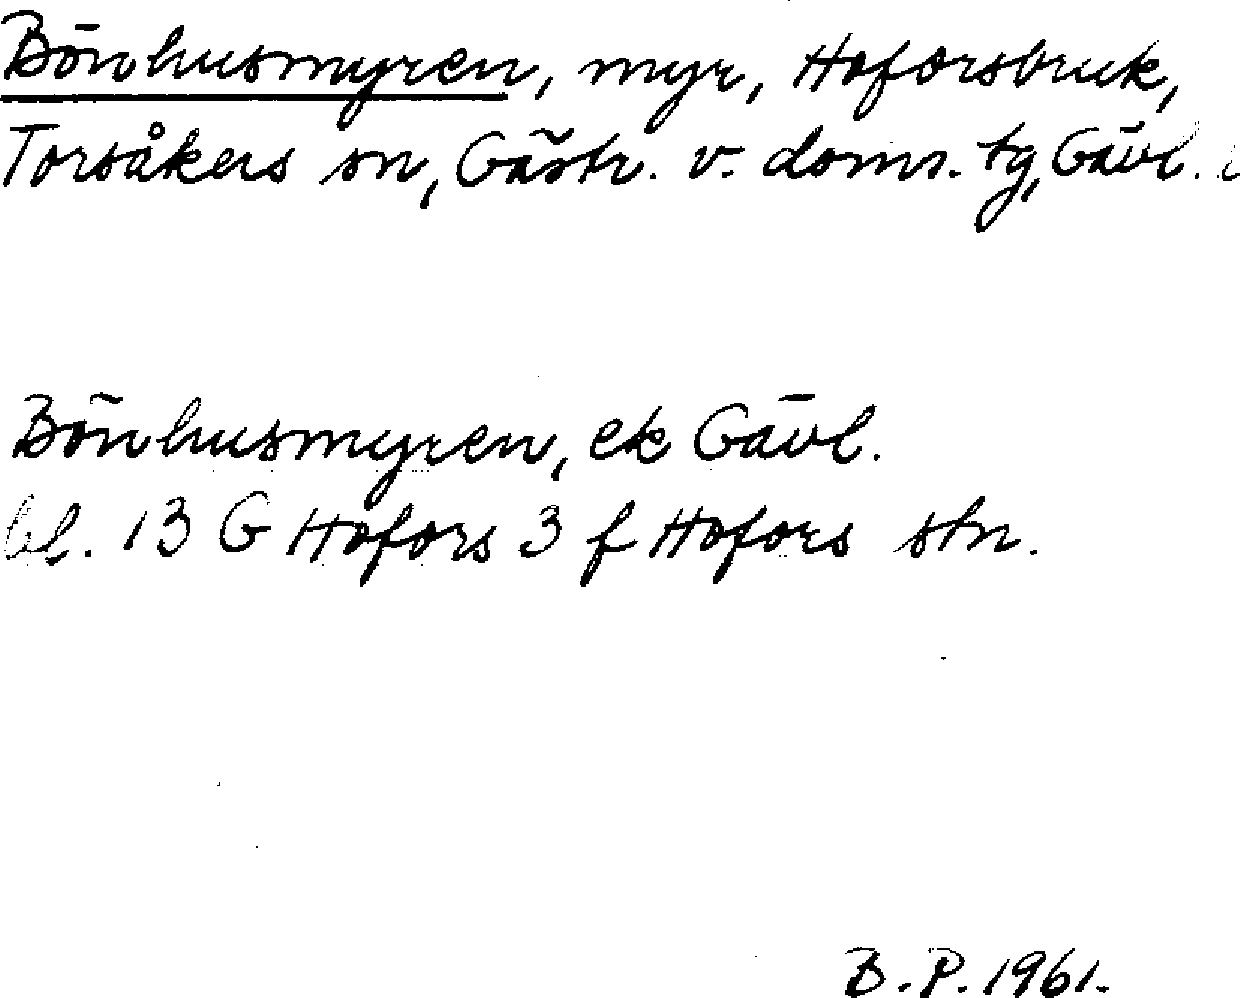 Bönhusmyren, myr, Hoforsbruk,
Torsåkers sn, Gästr. v. doms. tg, Gävl. l
Bönhusmyren, ek Gävl.
bl. 13 G Hofors 3 f Hofors stn.
B.P. 1961.